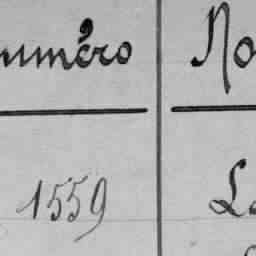 uméro No
1559 La